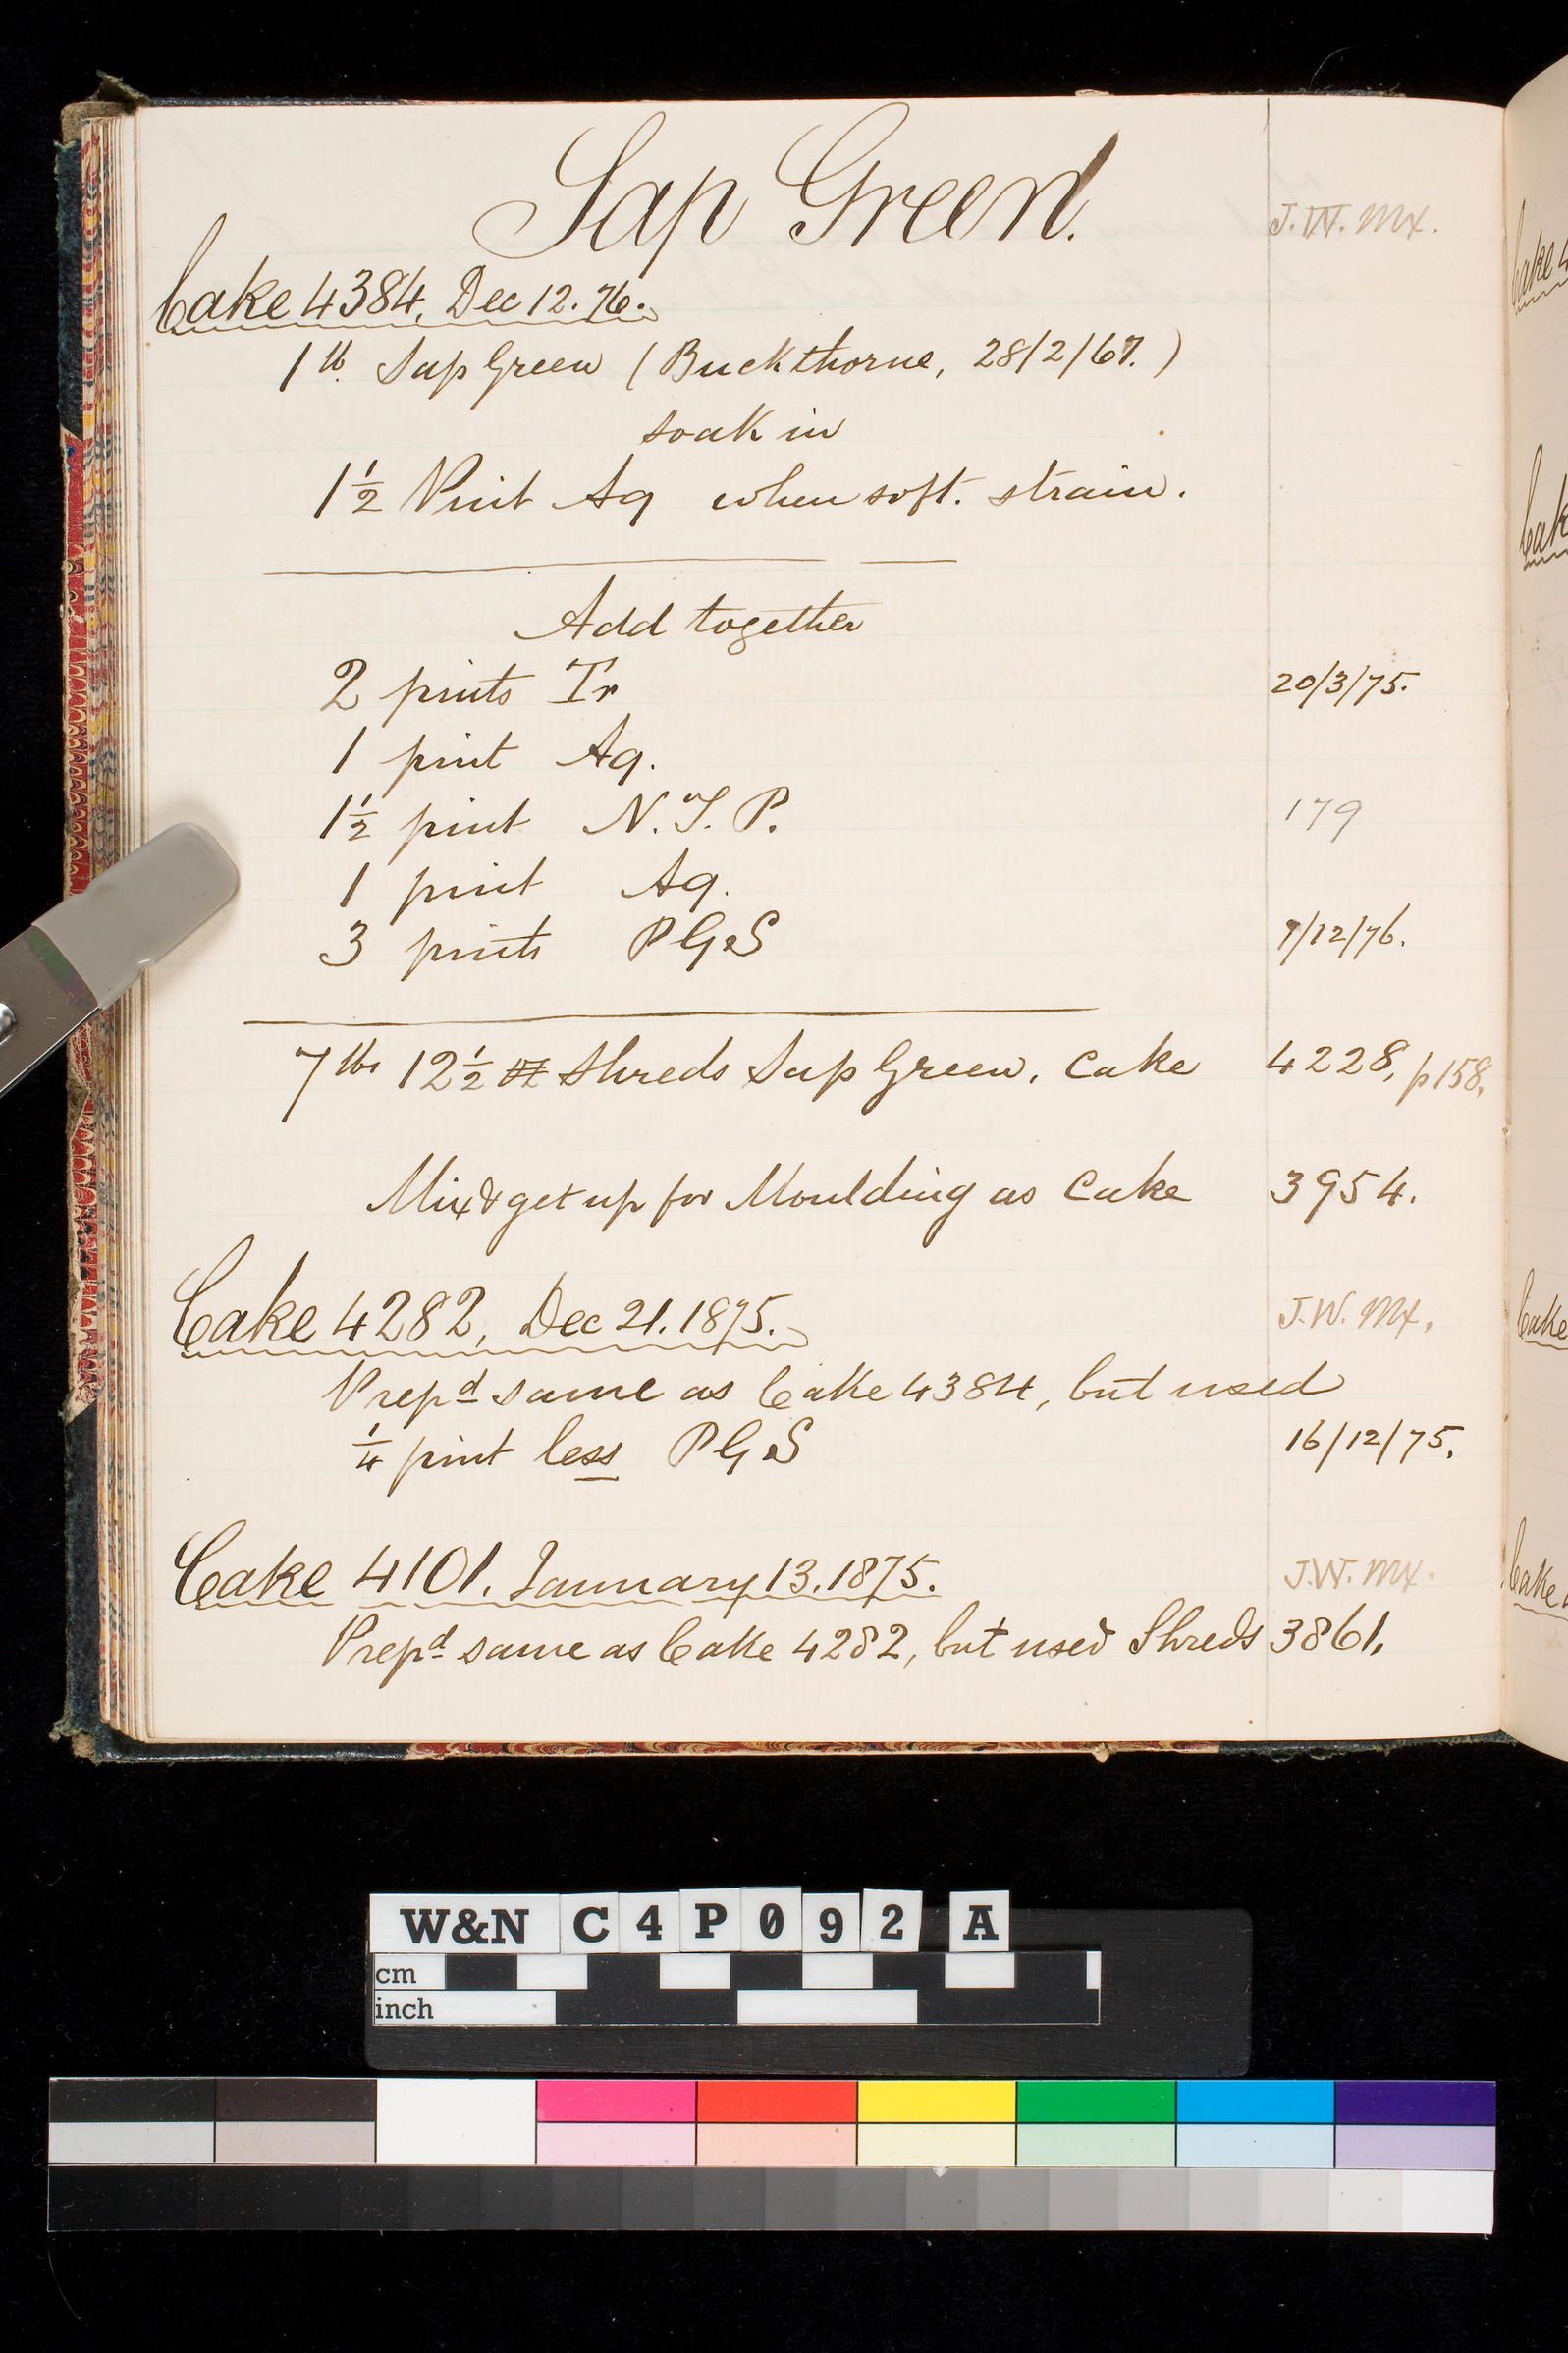 Sap Green.
J.W. Mx.
Cake 4384, Dec 12. 76.
1 lb. Sap Green (Buckthorne, 28/2/67.)
soak in
1½ Pint Aq when soft. strain.
Add together
2 pints Tr 20/3/75.
1 pint Aq.
1½ pint N.T.P. 179
1 pint Aq.
3 pints PG&S 9/12/76.
7 lbs 12½ Shreds Sap Green. Cake 4228, p158.
Mix & get up for Moulding as Cake 3954.
Cake 4282, Dec 21. 1875. J.W. Mx.
Prepd same as Cake 4384, but used
¼ pint less PG&S 16/12/75.
Cake 4101. January 13. 1875. J.W. Mx.
Prepd same as Cake 4282, but used Shreds 3861.
W&N C4P092 A
cm
inch